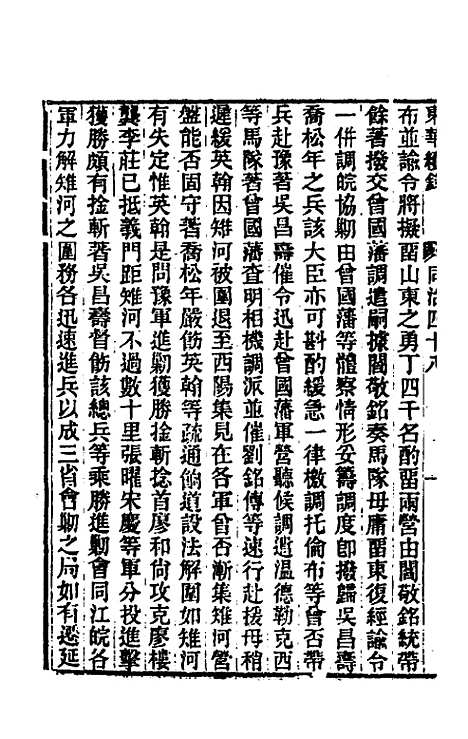 東華續錄 同治四十八 一
布並諭令將擬留山東之勇丁四千名酌留兩營由閻敬銘統帶
餘著撥交曾國藩調遣嗣據閻敬銘奏馬隊毋庸留東復經諭令
一併調皖協期由曾國藩等體察情形妥籌調度卽撥歸吳昌壽
喬松年之兵該大臣亦可斟酌緩急一律檄調托倫布等曾否帶
兵赴豫著吳昌壽催令迅赴曾國藩軍營聽候調遣溫德勒克西
等馬隊著曾國藩查明相機調派並催劉銘傳等速行赴援毋稍
遲緩英翰因雉河被圍退至西陽集見在各軍曾否漸集雉河營
盤能否固守著喬松年嚴飭英翰等疏通餉道設法解圍如雉河
有失定惟英翰是問豫軍進剿獲勝擒斬捻首廖和尙攻克廖樓
龔李莊已抵義門距雉河不過數十里張曜宋慶等軍分投進擊
獲勝頗有擒斬著吳昌壽督飭該總兵等乘勝進剿會同江皖各
軍力解雉河之圍務各迅速進兵以成三省會剿之局如有遷延